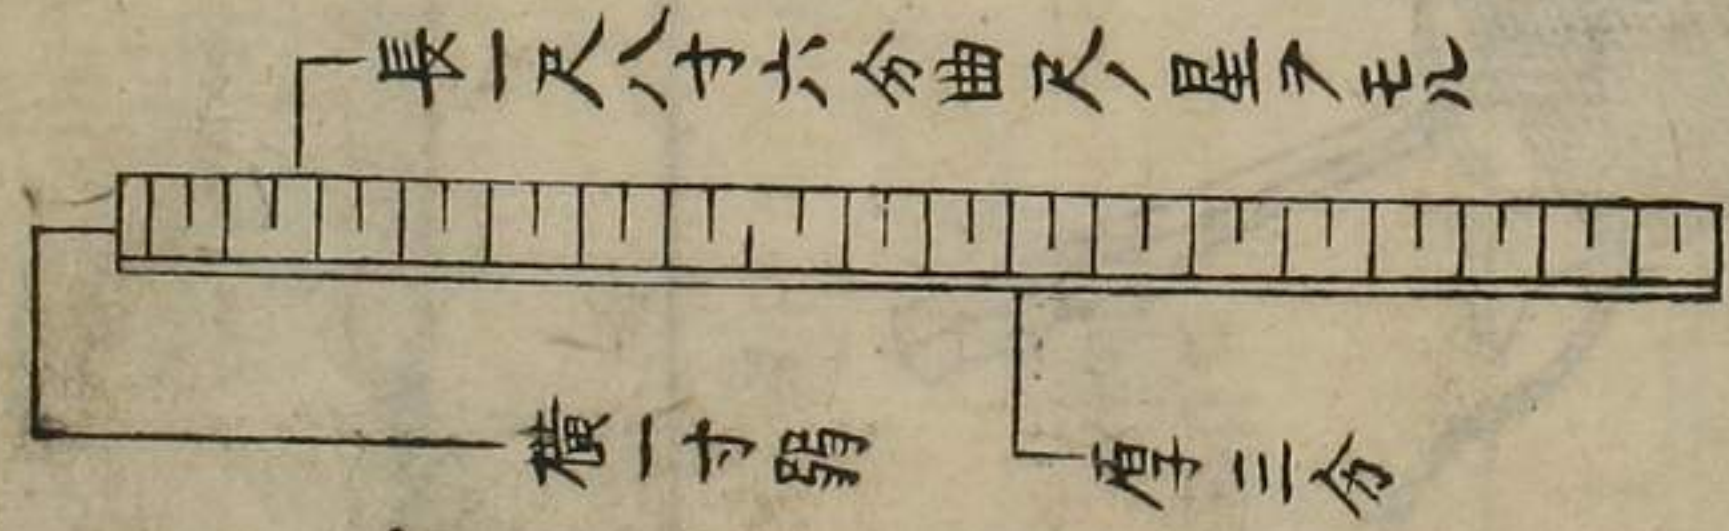 長一尺八寸六分曲尺ノ星ヲモル
横一寸弱
厚三分